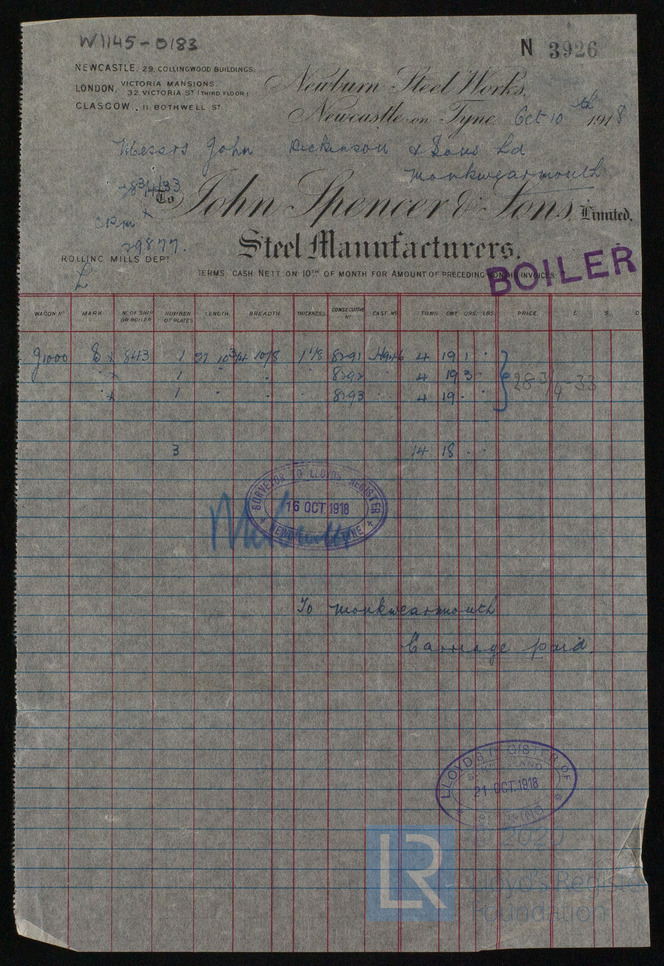 W1145-0183
N 3926
NEWCASTLE, 29, COLLINGWOOD BUILDINGS.
LONDON, VICTORIA MANSIONS,
32, VICTORIA ST (THIRD FLOOR)
GLASGOW, 11, BOTHWELL ST.
Newburn Steel Works,
Newcastle on Tyne Oct 10th 1918
Messrs John Dickinson & Sons Ld
Monkwearmouth
To John Spencer & Sons, Limited,
29877.
Steel Manufacturers.
ROLLING MILLS DEPT
TERMS, CASH NETT ON 10TH OF MONTH FOR AMOUNT OF PRECEDING MONTHS INVOICES
BOILER
WAGON No MARK No OF SHIP OR BOILER NUMBER OF PLATES LENGTH BREADTH THICKNESS CONSECUTIVE No CAST No TONS CWT QRS LBS PRICE £ S D
1 8291 4 19 1
1 8292 4 19 3
1 8293 4 19
28 3/4 - 33
3 14 18
SURVEYOR TO LLOYDS REGISTER
16 OCT 1918
NEWCASTLE ON TYNE
To Monkwearmouth
Carriage paid.
LLOYD'S REGISTER OF
SUNDERLAND
21 OCT. 1918
SHIPPING
© 2020
LR
Lloyd's Register
Foundation